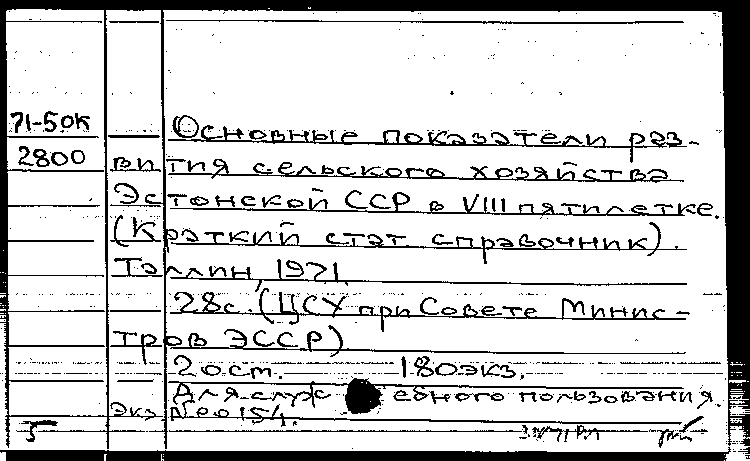 71-50К
2800
Основные показатели раз-
вития сельского хозяйства
Эстонской ССР в VIII пятилетке.
(Краткий стат справочник).
Таллин, 1971.
28с. (ЦСУ при Совете Минис-
тров ЭССР)
20 cm. 180 экз.
Для служ ебного пользования.
Экз №00154.
5